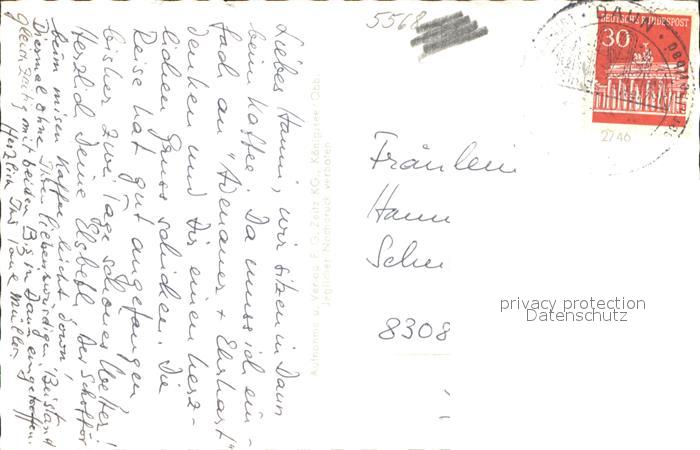 5568
DAUN
DEUTSCHE BUNDESPOST
30
2746
Liebes Hanni, wir sitzen in Daun
beim Kaffee. Da muss ich ein-
fach an "Adenauer + Ehrhart"
denken und Dir einen herz-
lichen Gruss schicken. Die
Reise hat gut angefangen
bisher zwei Tage schönes Wetter!
Herzlich Deine Elsbeth. Der Schofför
kam mien Kaffee leicht down!
Diesmal ohne Ihre liebenswürdigen Beistand
gleichzeitig mit beiden Bs in Daun eingetroffen.
Herzlich Ihr Müller
Aufnahme u. Verlag F. G. Zeitz KG., Königssee/Obb.
Jeglicher Nachdruck verboten
Fräulein
Hann
Schu
8308
privacy protection
Datenschutz